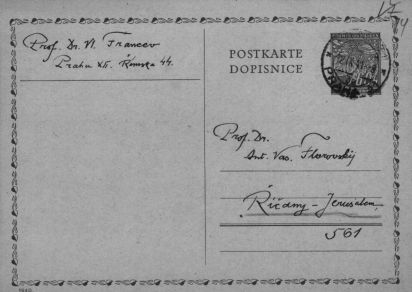 Prof. Dr. Vl. Francev
Praha XII. Římska 44.
POSTKARTE
DOPISNICE
Prof. Dr.
Ant. Vas. Florovskij
Říčany - Jerusalem,
561